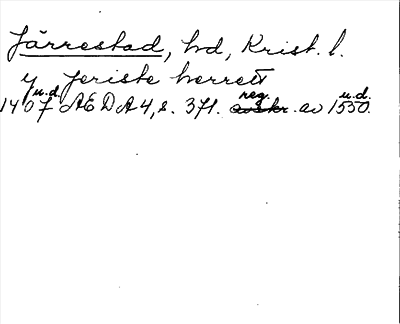 Järrestad, hd, Krist. l.
y Jeriste herrett
1407 u.d. AEDA 4, s. 371. reg. avskr. av 1550 u.d.